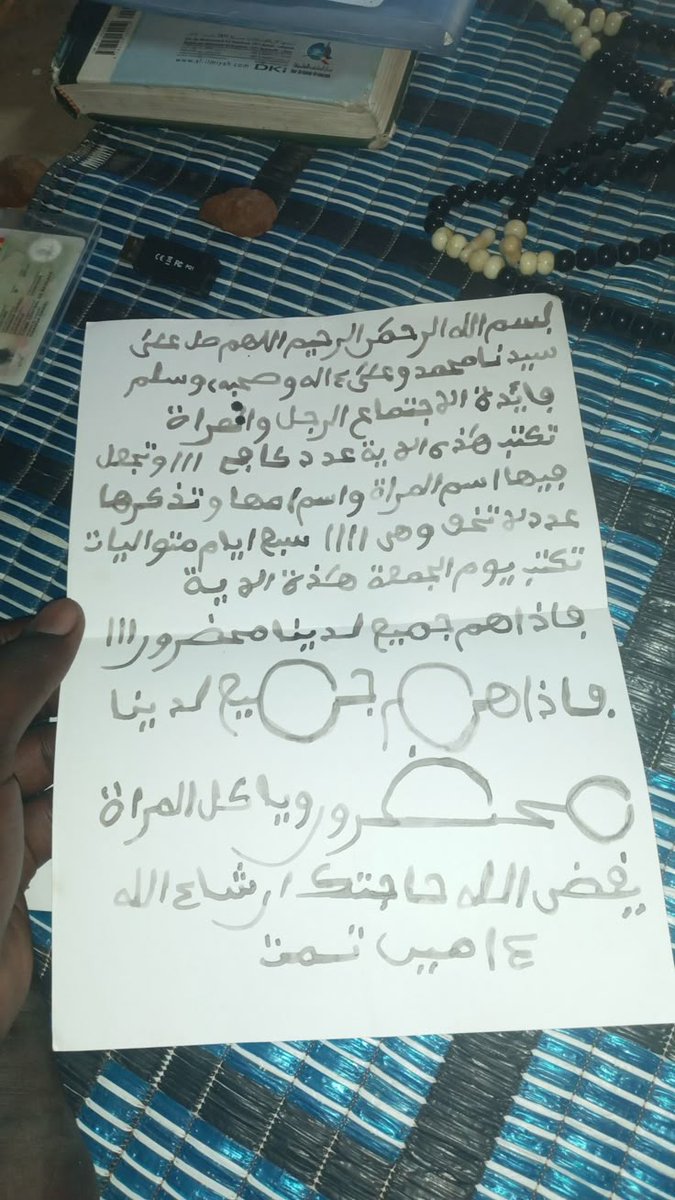 www.al-ilmiyah.com DKi
CE FC
بسم الله الرحمن الرحيم اللهم صل على
سيدنا محمد وعلى ءاله وصحبه وسلم
فائدة الاجتماع الرجل والمراة
تكتب هذه الاية عدد كاجع ١١١ وتجعل
فيها اسم المراة واسم امها وتذكرها
عدد وهى ١١١١ سبع ايام متواليات
تكتب يوم الجمعة هذة الاية
فاذاهم جميع لدينا محضرور ١١١
فاذاهم جميع لدينا
محضرور وياكل المراة
يفض الله حاجتك ارشاء الله
ءاميں تمت